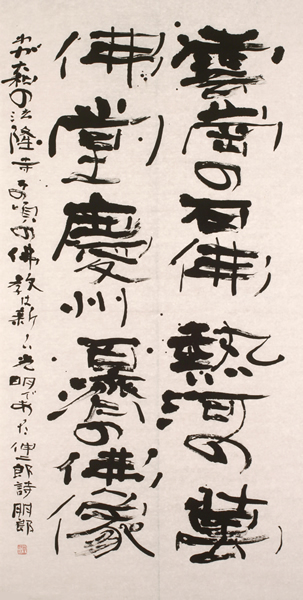 雲崗の石佛熱河の萬
佛堂慶州百濟の佛像
わが大和の法隆寺その頃の佛教は新しい光明であった 伸郎詩 朋郎